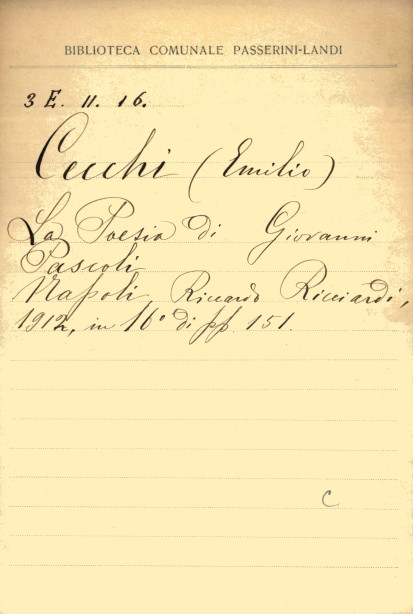 BIBLIOTECA COMUNALE PASSERINI-LANDI
3 E. 11. 16.
Cecchi (Emilio)
La Poesia di Giovanni
Pascoli
Napoli, Riccardo Ricciardi,
1912, in 16° di pp. 151.
C